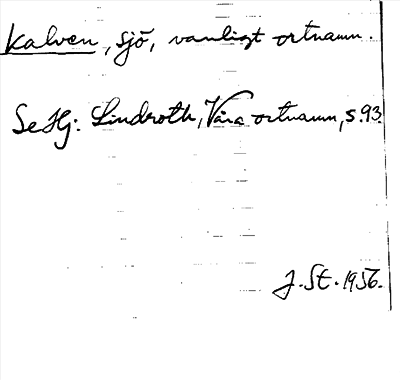 Kalven, sjö, vanligt ortnamn.
Se Hj: Lindroth, Våra ortnamn, s. 93.
J. St. 1956.